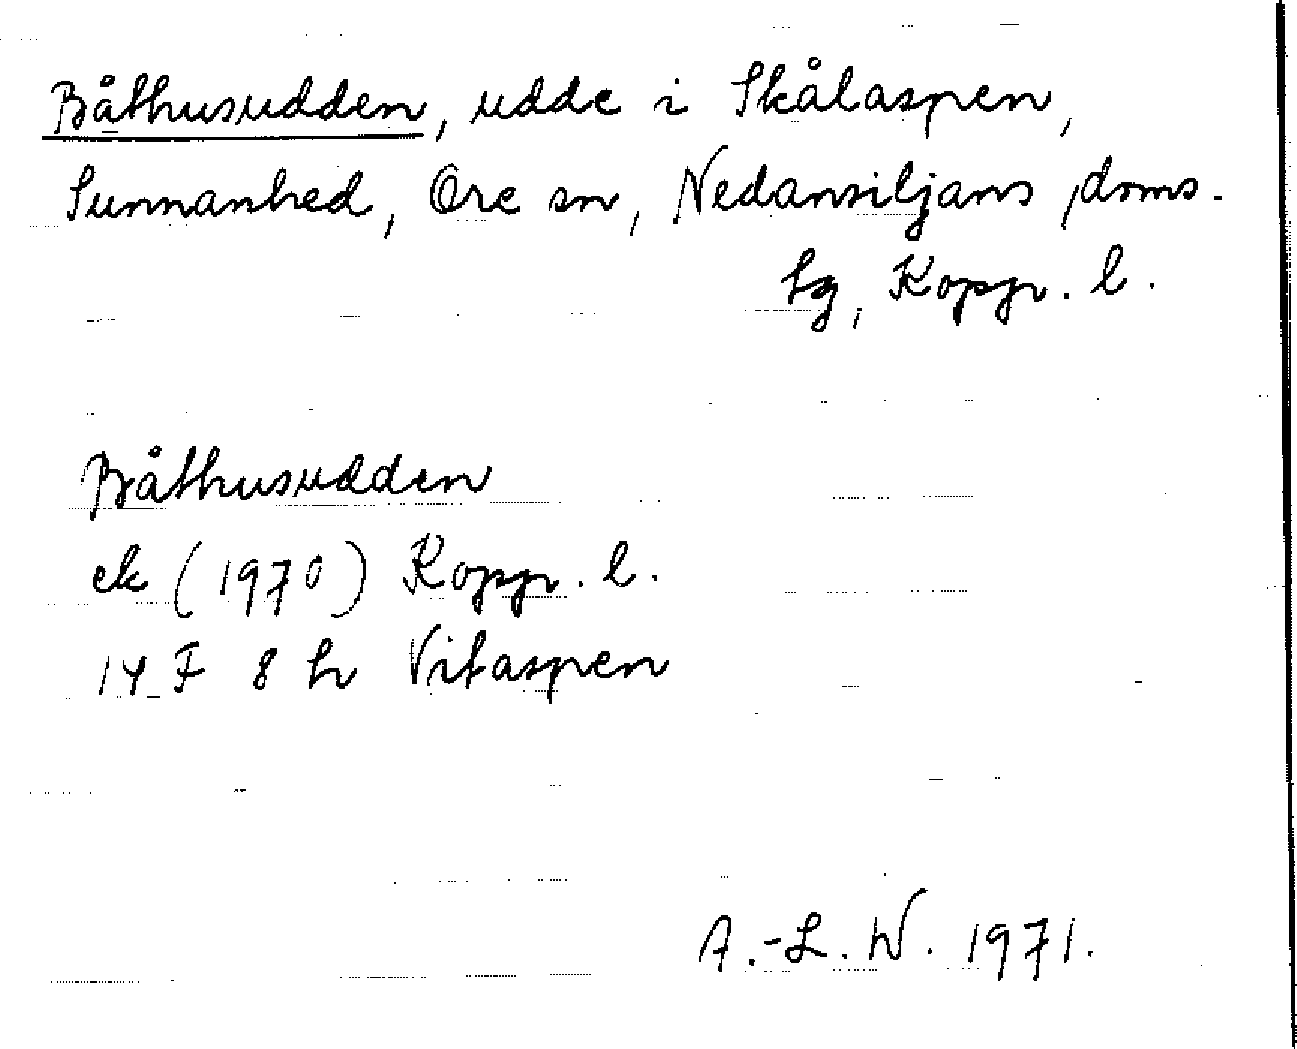 Båthusudden, udde i Skålaspen,
Sunnanhed, Ore sn, Nedansiljans doms-
sg, Kopp. l.
Båthusudden
ek (1970) Kopp. l.
14 F 8 h Vitaspen
A.-L. W. 1971.